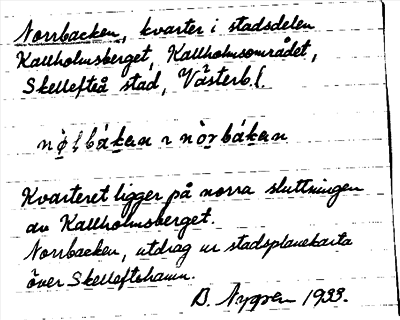 Norrbacken, kvarter i stadsdelen
Kallholmsberget, Kallholmsområdet,
Skellefteå stad, Västerb.l.
nø̀ḷbákan ɿ nòrbákan
Kvarteret ligger på norra sluttningen
av Kallholmsberget.
Norrbacken, utdrag ur stadsplanekarta
över Skelleftehamn.
B. Nygren 1933.